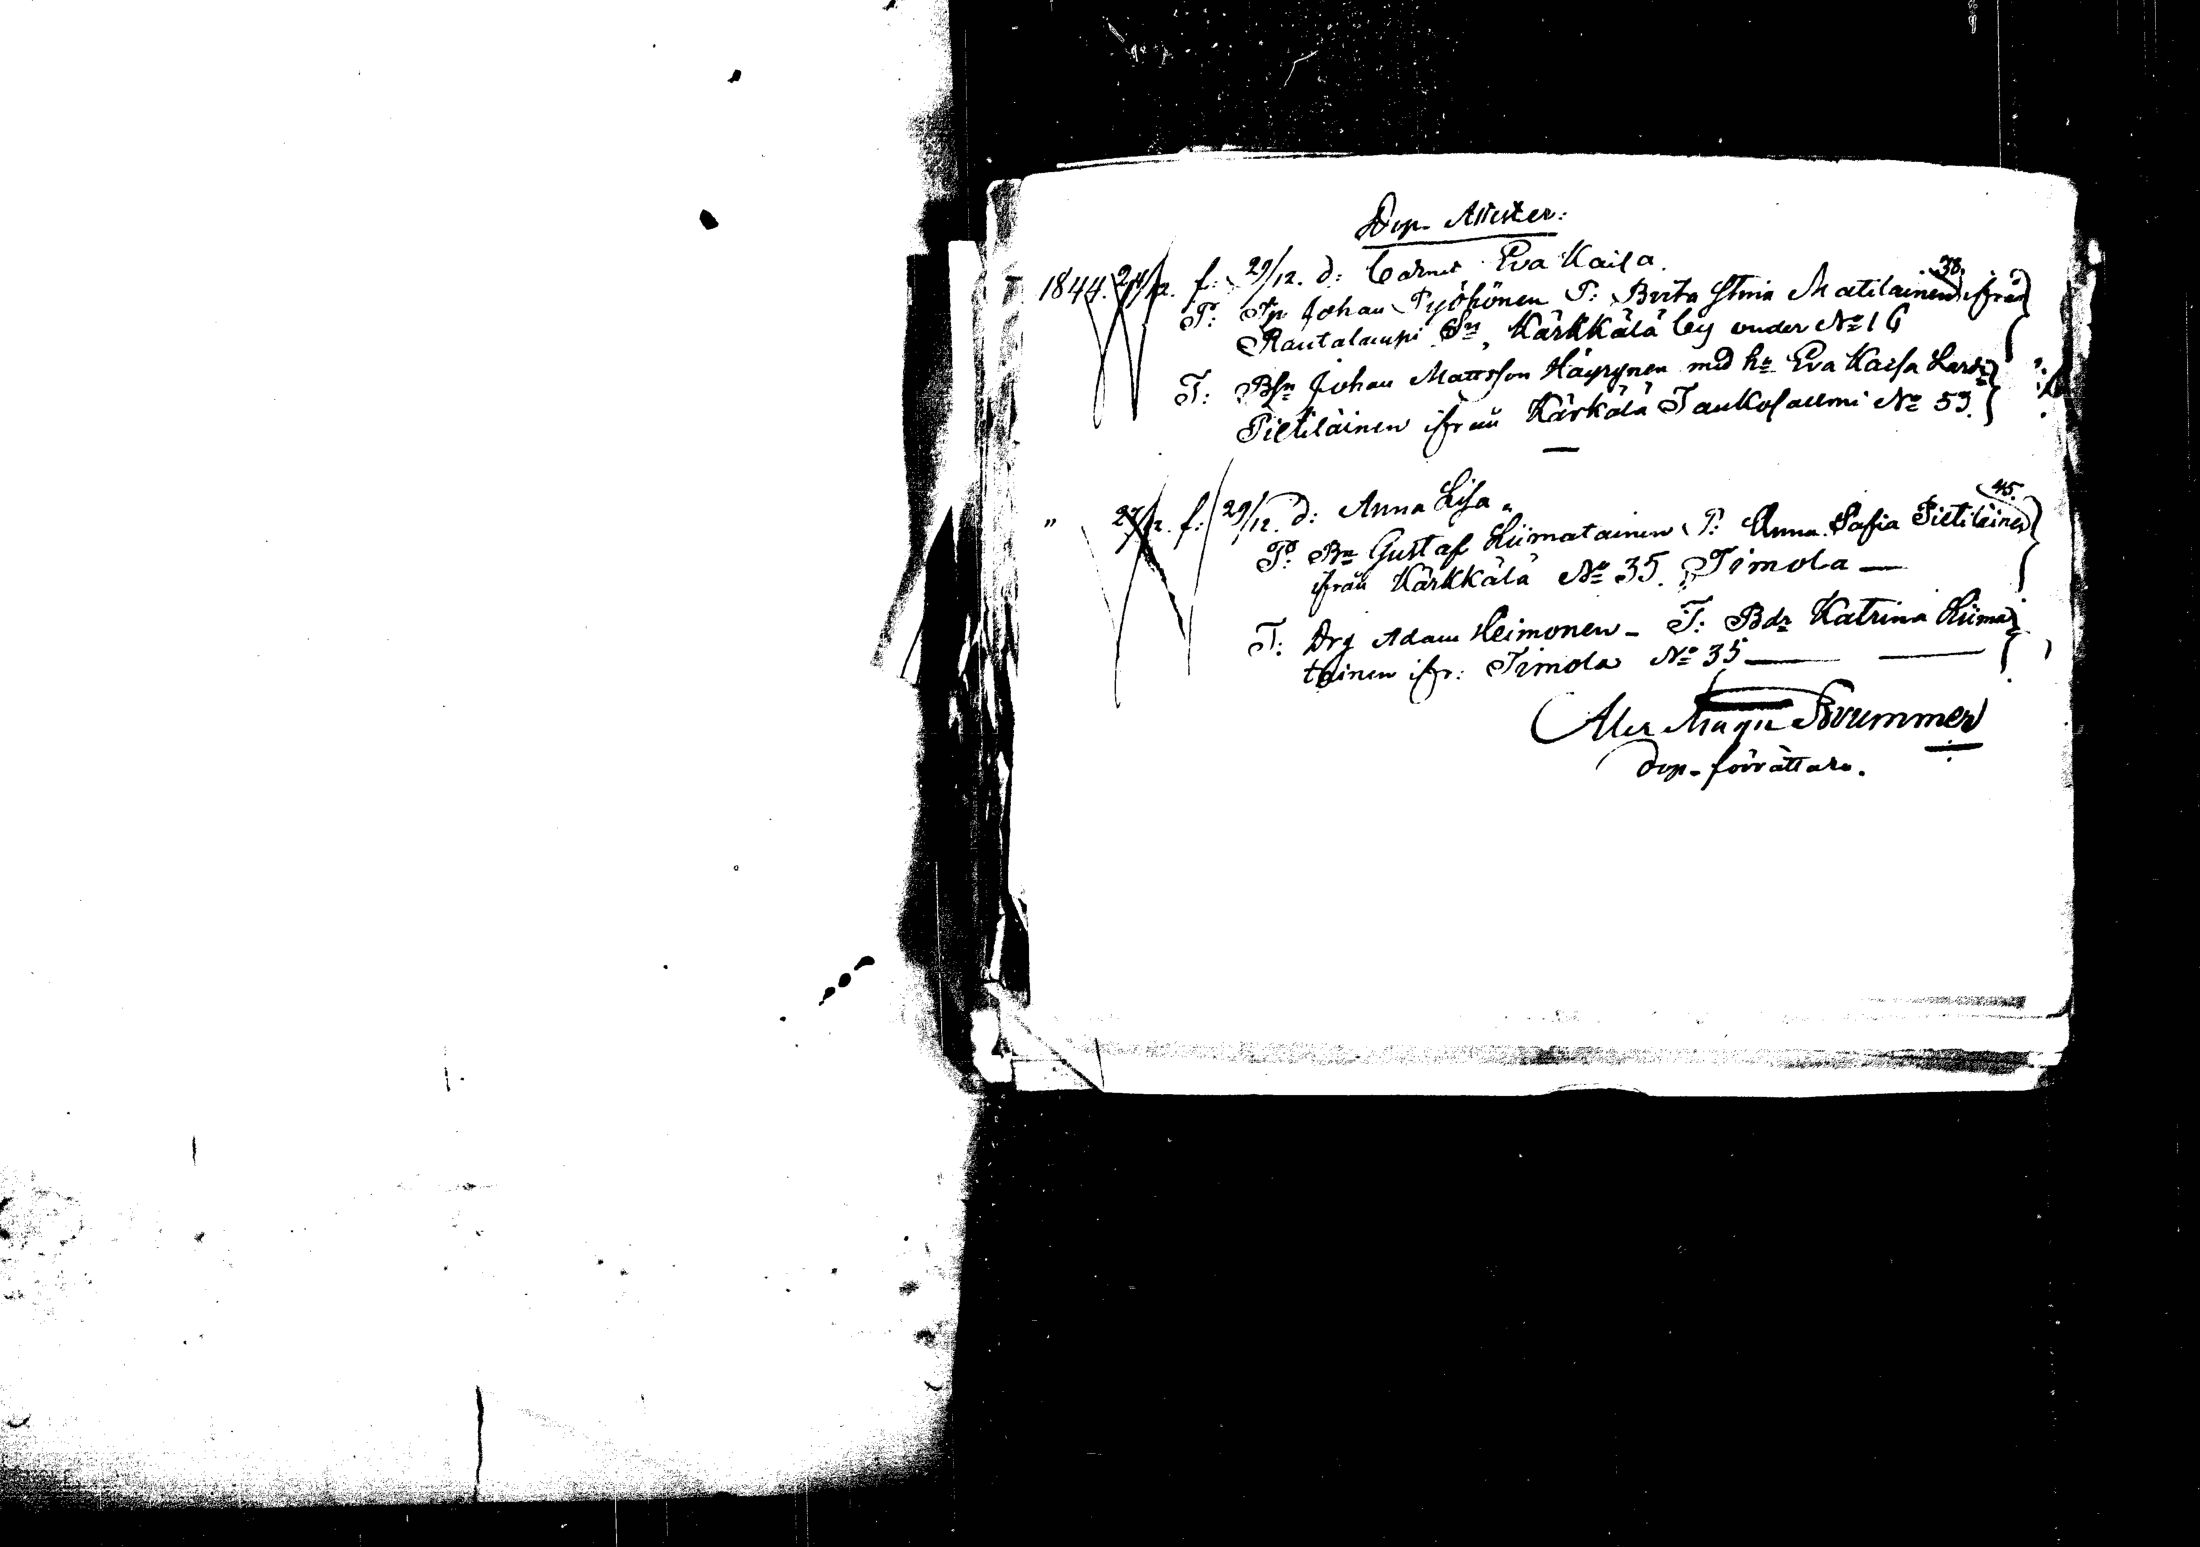 Dop-Attester:
1844. 24/12. f: 29/12. d: barnet Eva Kaisa.
38.
P: Tp Johan Pyöhönen P: Brita Stina Matilainen ifrån
Rautalampi Sn, Kärkkälä by under No 16
T: Bsn Johan Mattsson Häyrynen med h: Eva Kaisa Larsd:
Pietiläinen ifrån Kärkälä Taukosalmi No 53.
" 27/12. f: 29/12. d: Anna Lisa.
45.
P: Bn Gustaf Liimatainen P: Anna Sofia Pietiläinen
ifrån Kärkkälä No 35. Timola —
T: Drg Adam Heimonen - T: Bdr Katrina Liima=
tainen ifr: Timola No 35 — —
Alex Magn Brummer
Dop-förrättare.